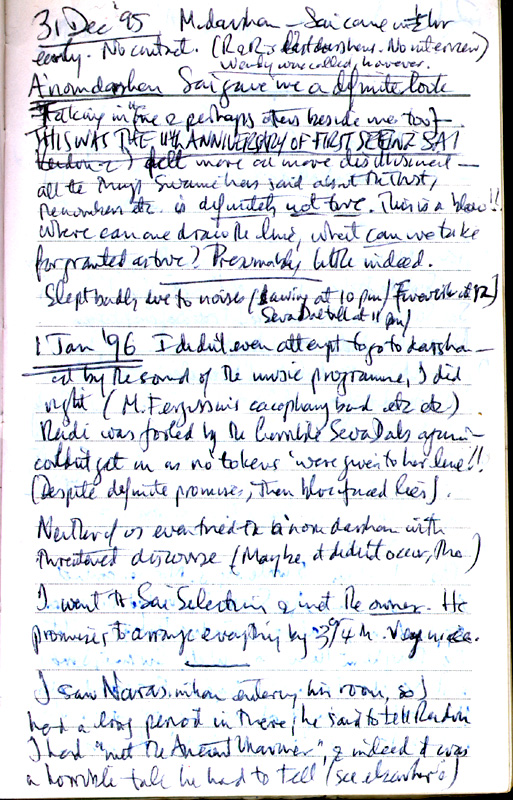 31 Dec '95 M. darshan – Sai came with ½ hr
early. No contact. (R&R's last darshans. No interview)
Wendy was called, however.
A'noon darshan Sai gave me a definite look
"Taking in" me & perhaps others beside me too!
THIS WAS THE 11th ANNIVERSARY OF FIRST SEEING SAI
Reidun & I fell more and more disillusioned –
all the things Swami has said about the Trust,
the workers etc. is definitely not true. This is a blow!!
Where can one draw the line, what can we take
for granted as true? Presumably little indeed.
Slept badly due to noises ( at 10 pm/ at 12)
Seva Dal at 11 pm)
1 Jan '96 I didn't even attempt to go to darshan –
and by the sound of the music programme, I did
right (M. Ferguson's cacophany band etc etc)
Reidi was fooled by the horrible Seva Dals again –
couldn't get in as no tokens were given to her line!!
(Despite definite promises, then bloxfaced lies).
Neither of us even tried the a'noon darshan with
threatened discourse (Maybe it didn't occur, tho)
I went to Sai Selections & met the owner. He
promises to arrange everything by 3rd/4th. Very nice.
I saw Narasimhan entering his room, so I
had a long period in there, he said to tell Reidun
I had "met the Ancient Mariner", & indeed it was
a horrible tale he had to tell (see elsewhere)